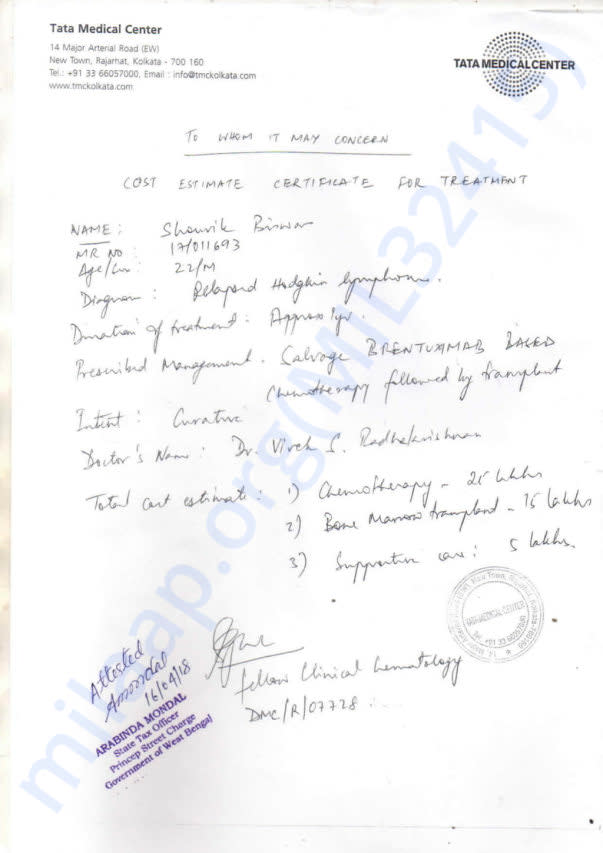 Tata Medical Center
14 Major Arterial Road (EW)
New Town, Rajarhat, Kolkata - 700 160
Tel.: +91 33 66057000, Email : info@tmckolkata.com
www.tmckolkata.com
TATA MEDICAL CENTER
TO WHOM IT MAY CONCERN
COST ESTIMATE CERTIFICATE FOR TREATMENT
NAME : Shouvik Biswas
MR NO : 17/011693
Age/Sex : 22/M
Diagnosis : Relapsed Hodgkin lymphoma.
Duration of treatment : Approx 1yr.
Prescribed Management. Salvage BRENTUXIMAB BASED
Chemotherapy followed by transplant
Intent : Curative
Doctor's Name : Dr. Vivek S. Radhakrishnan
Total cost estimate : 1) Chemotherapy - 25 lakhs
2) Bone Marrow transplant - 15 lakhs
3) Supportive care : 5 lakhs.
TATA MEDICAL CENTER
fellow Clinical hematology
DMC/R/07728
Attested
Amondal
16/04/18
ARABINDA MONDAL
State Tax Officer
Princep Street Charge
Government of West Bengal
milaap.org(MIL32415)